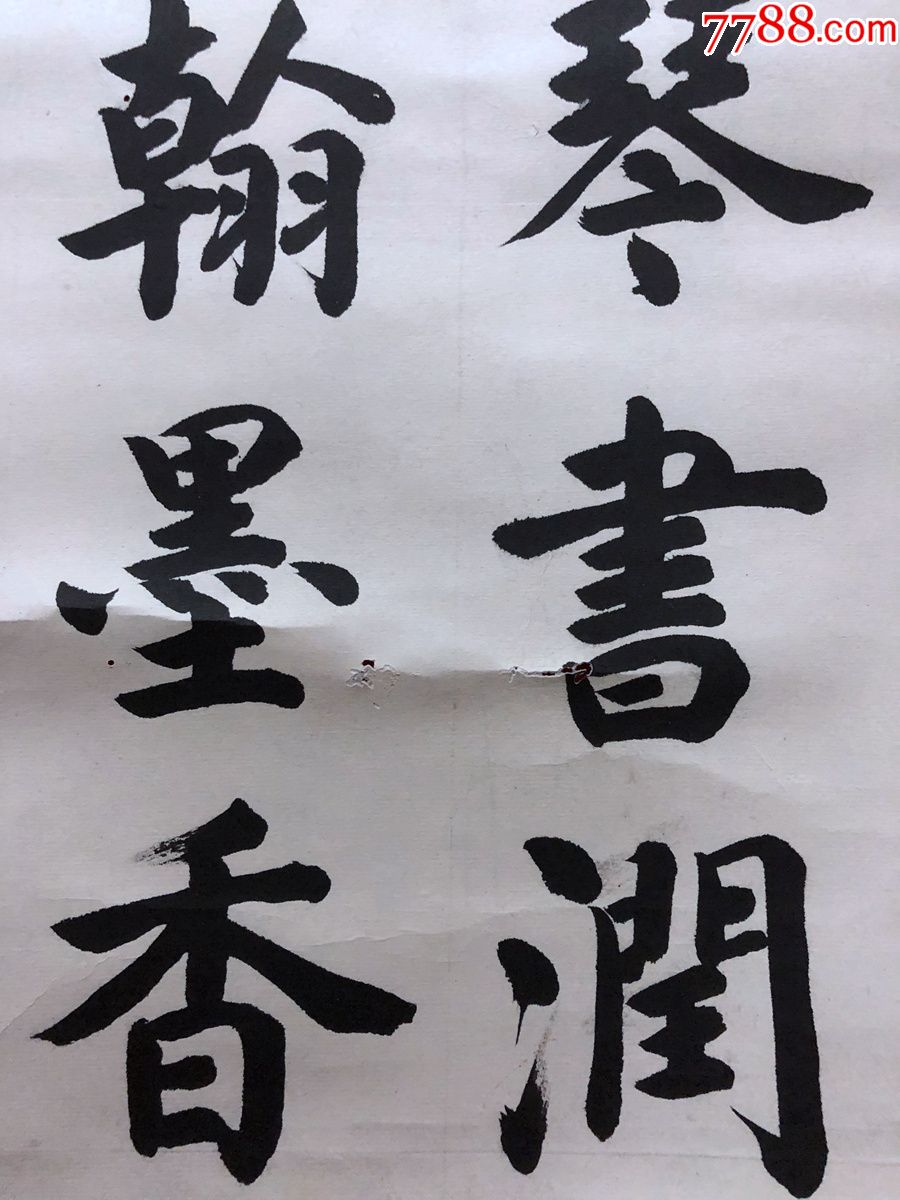 7788.com
琴書潤
翰墨香